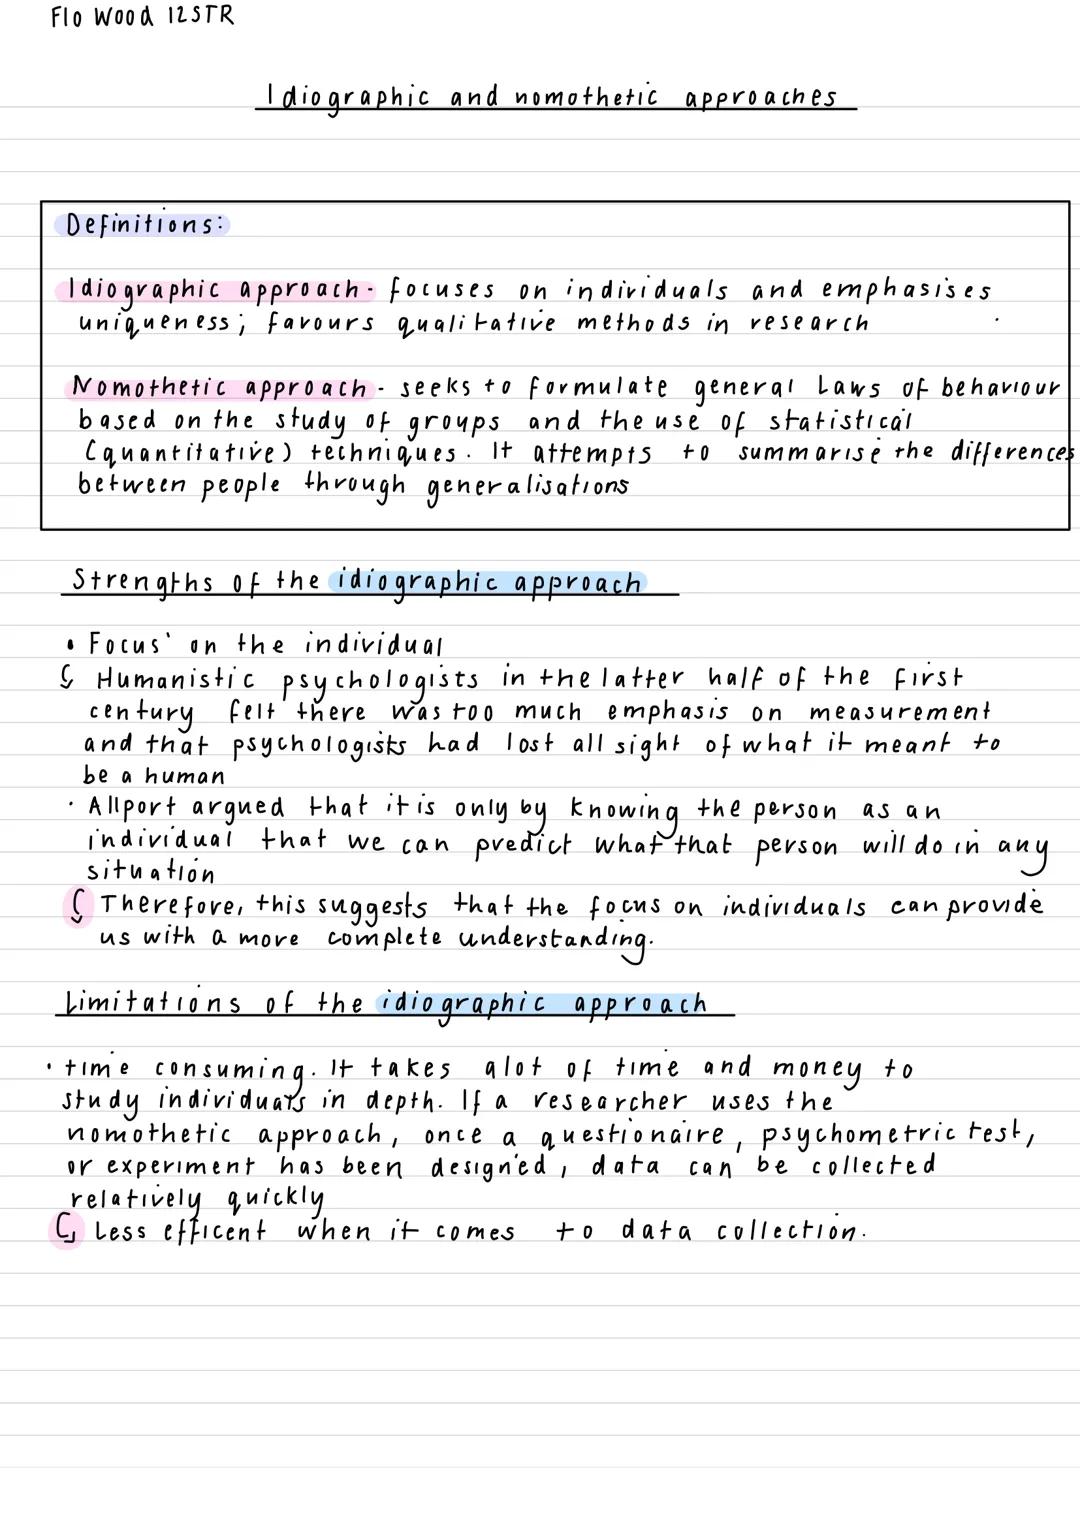 Flo Wood 12STR
Idiographic and nomothetic approaches
Definitions:
Idiographic approach - focuses on individuals and emphasises
uniqueness; favours qualitative methods in research
Nomothetic approach - seeks to formulate general laws of behaviour
based on the study of groups and the use of statistical
(quantitative) techniques. It attempts to summarise the differences
between people through generalisations
Strengths of the idiographic approach
• Focus' on the individual
↳ Humanistic psychologists in the latter half of the first
century felt there was too much emphasis on measurement
and that psychologists had lost all sight of what it meant to
be a human
• Allport argued that it is only by knowing the person as an
individual that we can predict what that person will do in any
situation
↳ Therefore, this suggests that the focus on individuals can provide
us with a more complete understanding.
Limitations of the idiographic approach
• time consuming. It takes alot of time and money to
study individuals in depth. If a researcher uses the
nomothetic approach, once a questionaire, psychometric test,
or experiment has been designed, data can be collected
relatively quickly
↳ Less efficent when it comes to data collection.